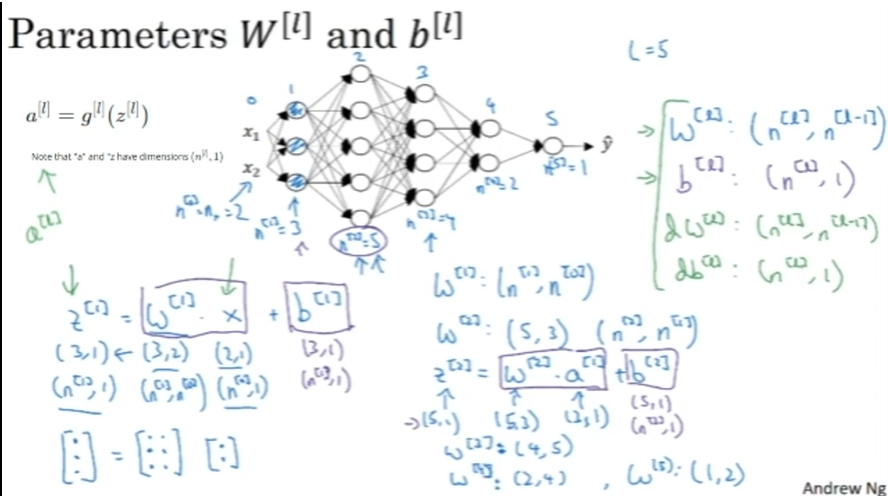 Parameters W^[l] and b^[l]
L=5
a^[l] = g^[l](z^[l])
Note that "a" and "z have dimensions (n^[l], 1)
a^[l]
0 1 2 3 4 5
x₁
x₂
ŷ
n^[0] = n_x = 2
n^[1]=3
n^[2]=5
n^[3]=4
n^[4]=2
n^[5]=1
W^[l]: (n^[l], n^[l-1])
b^[l]: (n^[l], 1)
dW^[l]: (n^[l], n^[l-1])
db^[l]: (n^[l], 1)
z^[1] = W^[1] · x + b^[1]
(3,1) ← (3,2) (2,1) (3,1)
(n^[1], 1) (n^[1], n^[0]) (n^[0], 1) (n^[1], 1)
W^[1]: (n^[1], n^[0])
W^[2]: (5,3) (n^[2], n^[1])
z^[2] = W^[2] · a^[1] + b^[2]
→(5,1) (5,3) (3,1) (5,1)
(n^[2], 1)
W^[3]: (4,5)
W^[4]: (2,4), W^[5]: (1,2)
Andrew Ng